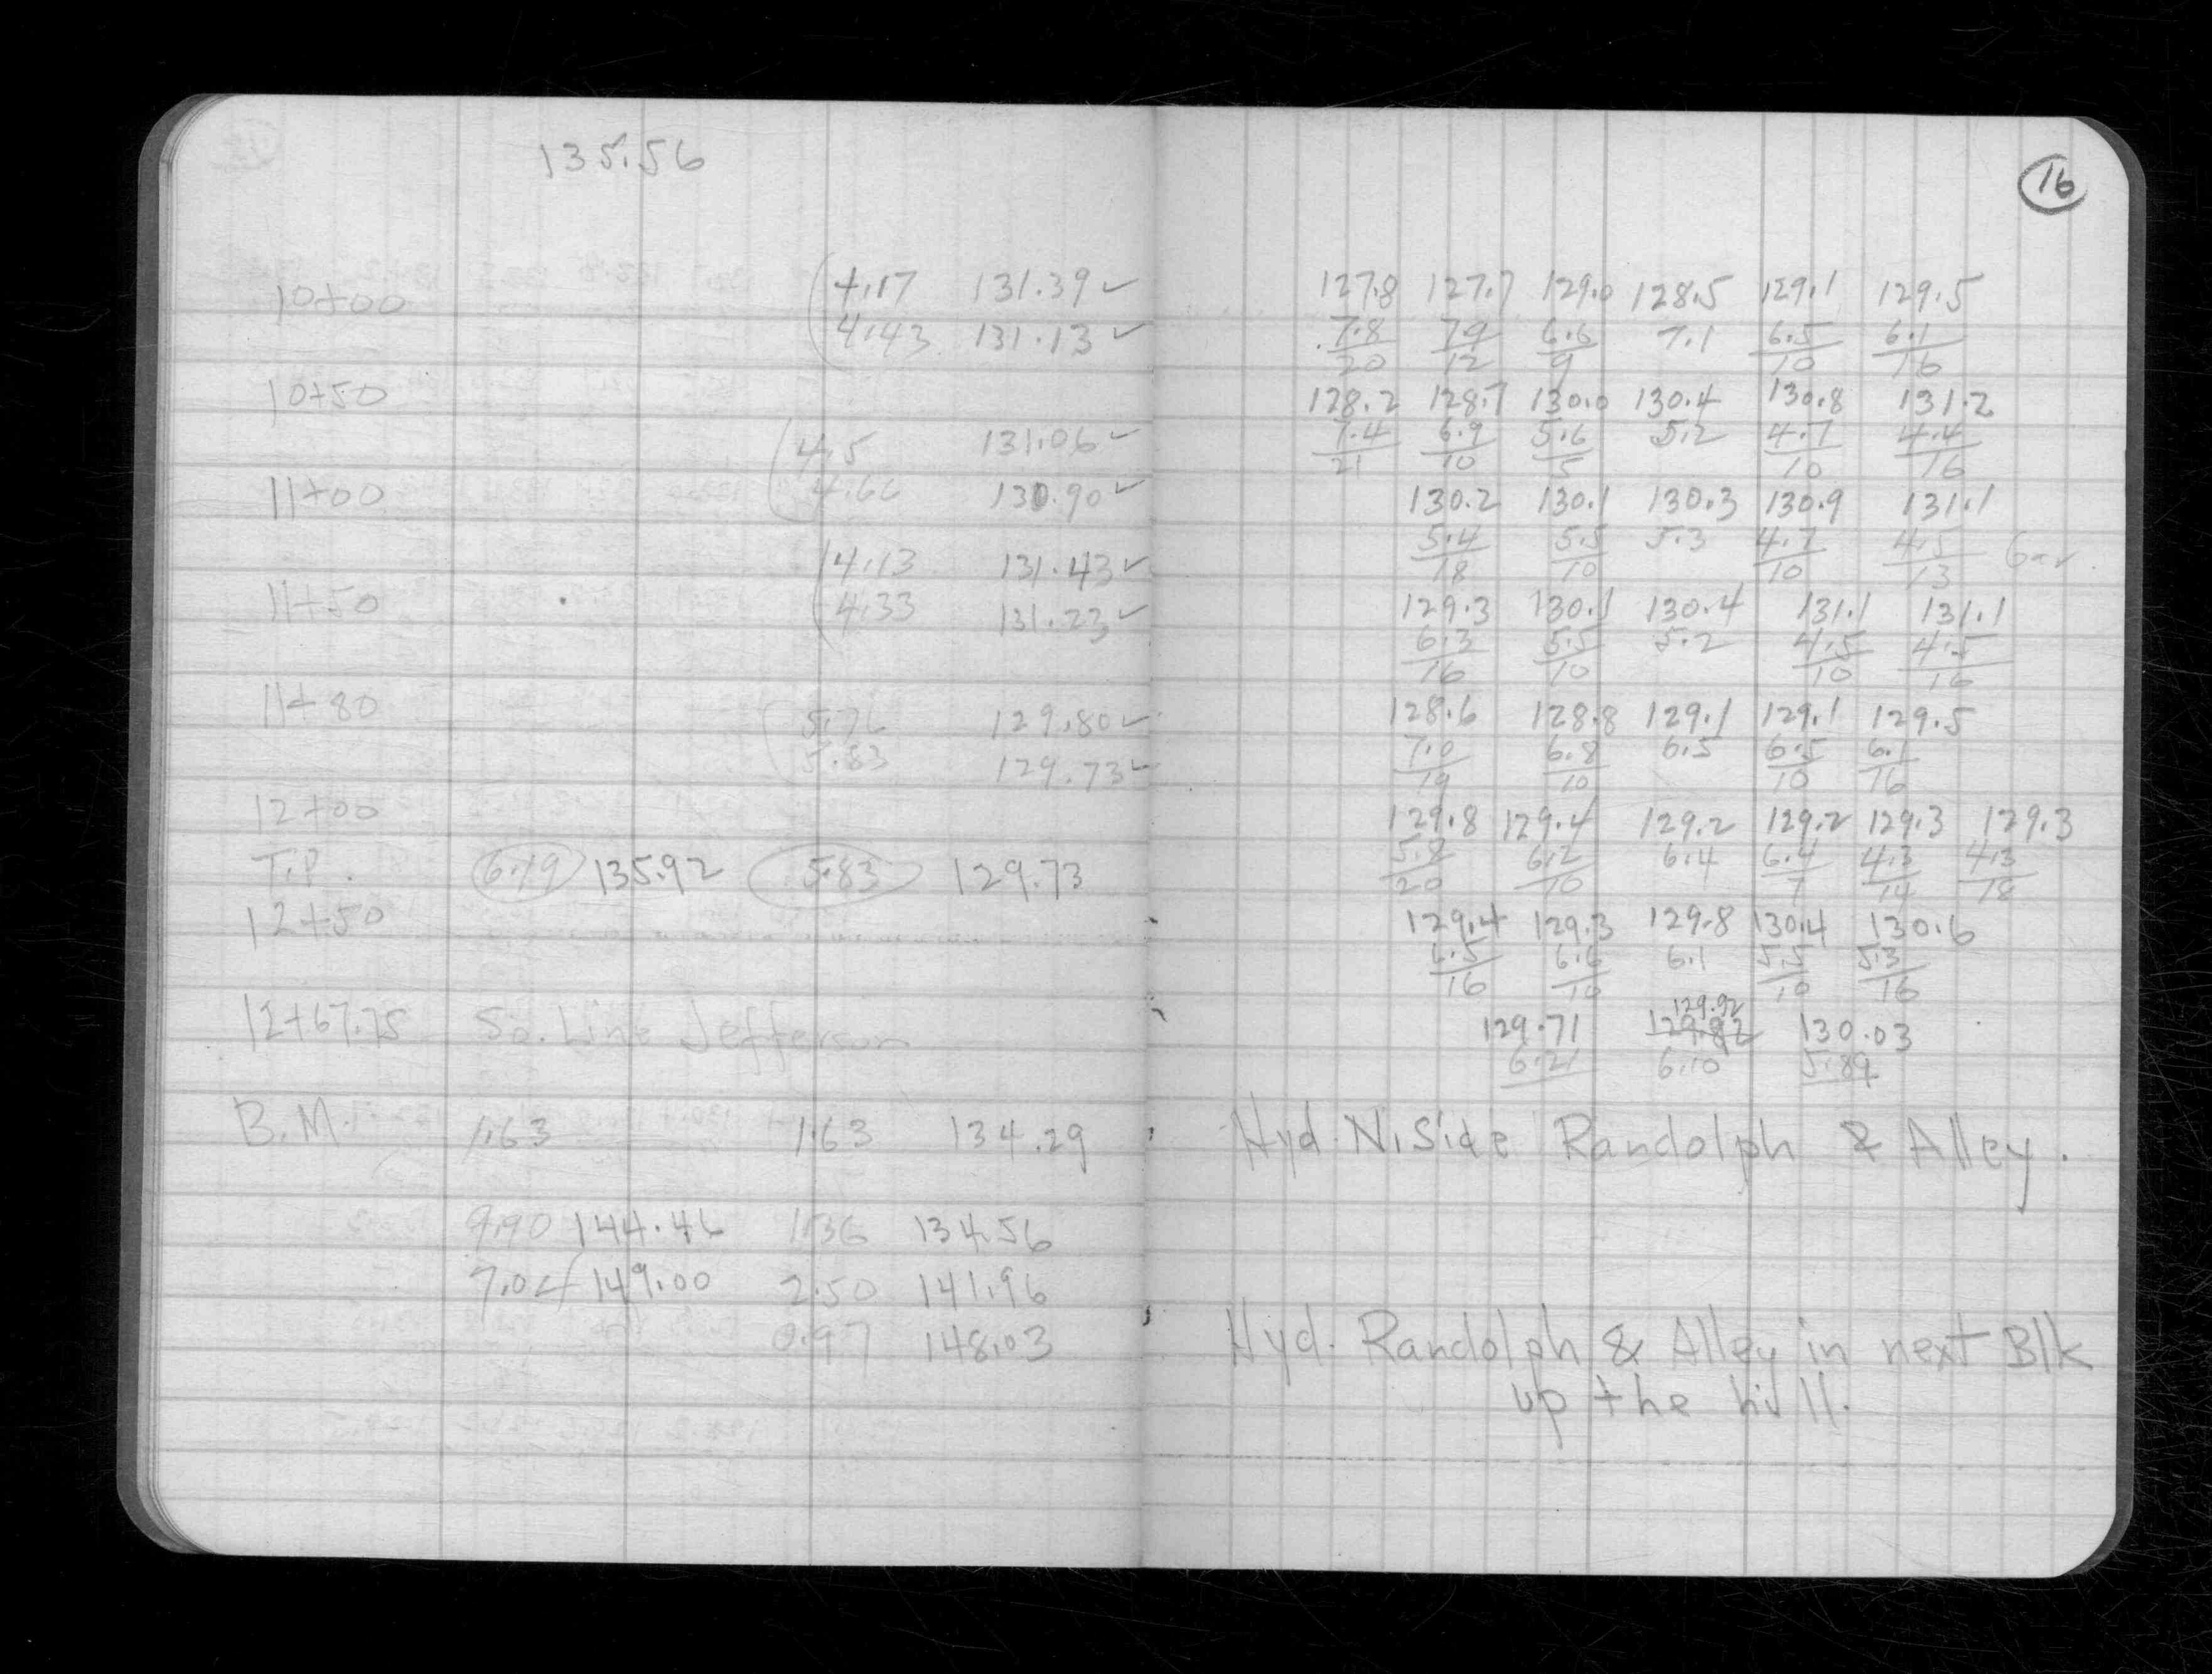 135.56
16
10+00
4.17 131.39 ✓
4.43 131.13 ✓
10+50
4.5 131.06 ✓
4.66 130.90 ✓
11+00
4.13 131.43 ✓
4.33 131.23 ✓
11+50
11+80
5.76 129.80 ✓
5.83 129.73 ✓
12+00
T.P. 6.19 135.92 5.83 129.73
12+50
12+67.75 So. Line Jefferson
B.M. 1.63 1.63 134.29
9.90 144.46 1.36 134.56
7.04 149.00 2.50 141.96
0.97 148.03
127.8 127.7 129.0 128.5 129.1 129.5
7.8 7.9 6.6 7.1 6.5 6.1
20 12 9 10 16
128.2 128.7 130.0 130.4 130.8 131.2
7.4 6.9 5.6 5.2 4.7 4.4
21 10 5 10 16
130.2 130.1 130.3 130.9 131.1
5.4 5.5 5.3 4.7 4.5
18 10 10 13
129.3 130.1 130.4 131.1 131.1
6.3 5.5 5.2 4.5 4.5
16 10 10 16
128.6 128.8 129.1 129.1 129.5
7.0 6.8 6.5 6.5 6.1
19 10 10 16
129.8 129.4 129.2 129.2 129.3 129.3
5.8 6.2 6.4 6.4 4.3 4.3
20 10 7 14 18
129.4 129.3 129.8 130.4 130.6
6.5 6.6 6.1 5.5 5.3
16 10 10 16
129.92
129.71 129.82 130.03
6.21 6.10 5.89
Hyd. N. Side Randolph & Alley.
Hyd. Randolph & Alley in next Blk
up the hill.